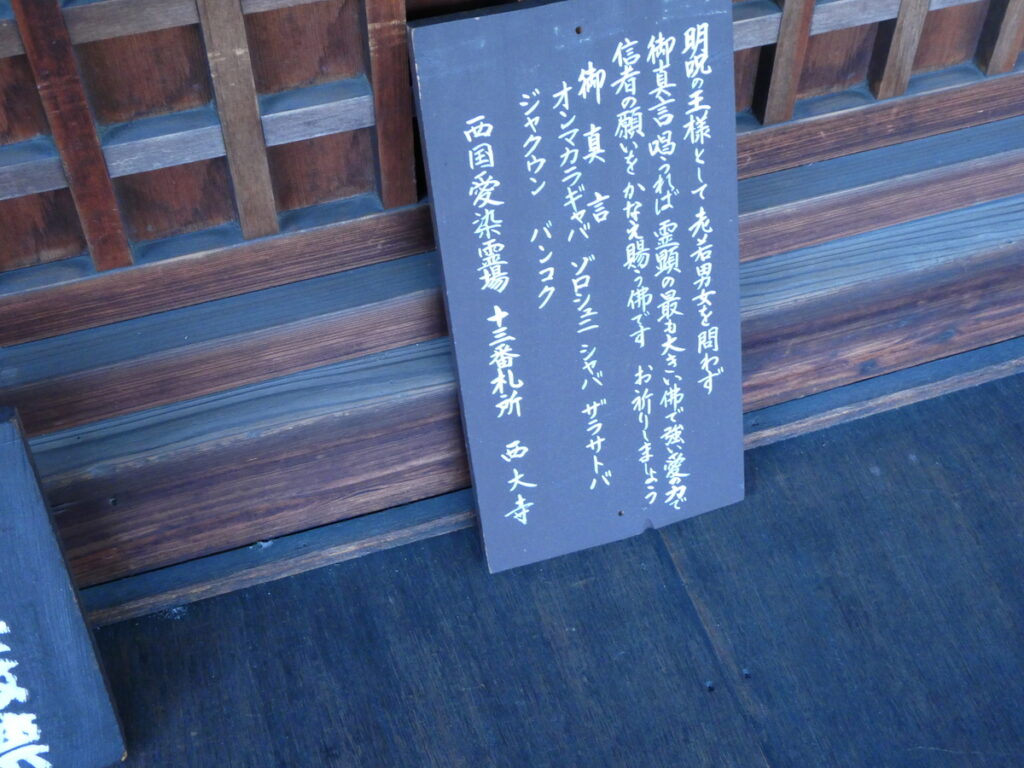 明呪の王様として老若男女を問わず
御真言唱うれば霊顕の最も大きい佛で強い愛の力で
信者の願いをかなえ賜う佛です お祈りしましょう
御真言
オンマカラギャバ ゾロシュニシャバ ザラサトバ
ジャクウン バンコク
西国愛染霊場 十三番札所 西大寺